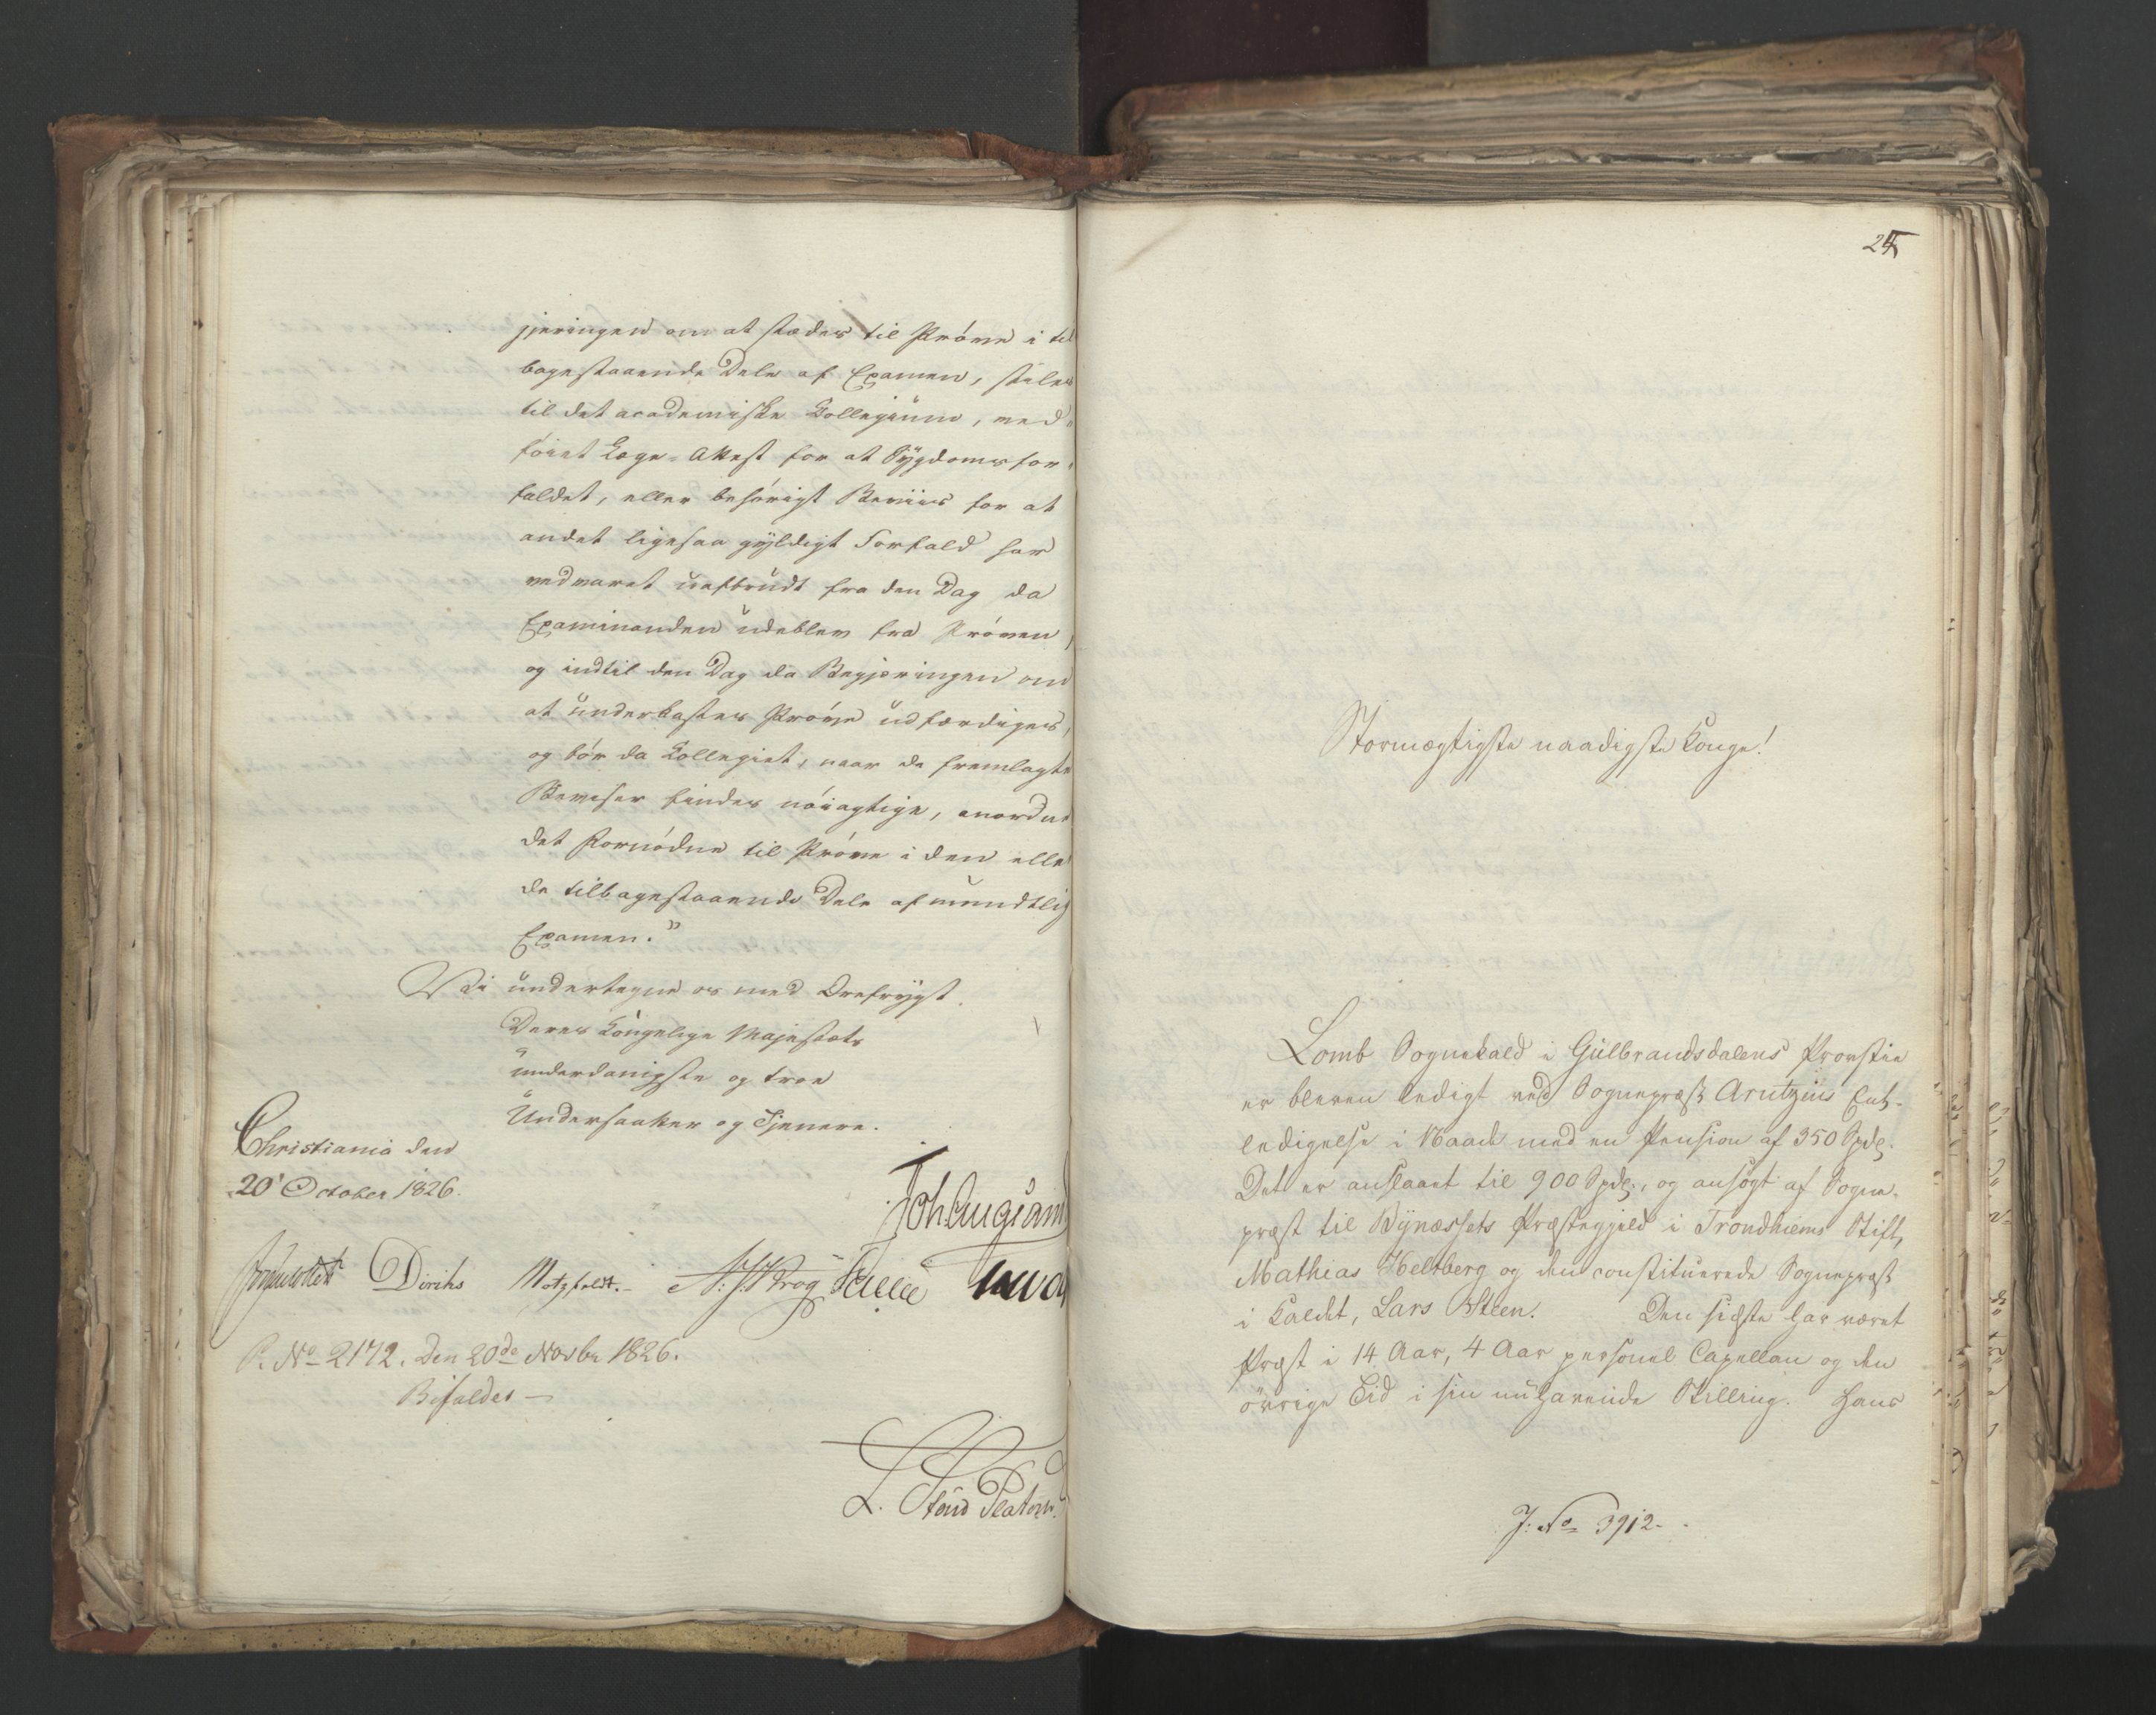 gjæringen om at stædes til Prøve i til
bagestaaende Dele af Examen, stiles
til det academiske Collegium, ved-
føiet Læge-Attest for at Sygdomsfor-
faldet, eller behørigt Beviis for at
andet ligesaa gyldigt Forfald har
vedvaret uafbrudt fra den Dag da
Examinanden udeblev fra Prøven,
og indtil den Dag da Begjæringen om
at underkastes Prøve udfærdiges,
og bør da Collegiet, naar de fremlagte
Beviser findes nøiagtige, anordne
det Fornødne til Prøve i den eller
de tilbagestaaende Dele af mundtlig
Examen."
Vi undertegne os med Ærefrygt.
Deres Kongelige Majestæts
underdanigste og troe
Undersaatter og Tjenere.
Christiania den
20' October 1826.
Joh Aug Sand
Diriks Motzfeldt. Krog
P. No 2172. Den 20de Novbr 1826.
Bifaldes —
L. Stoud Platou
24
Stormægtigste naadigste Konge!
Lomb Sognekald i Gulbrandsdalens Provstie
er bleven ledigt ved Sognepræst Arntzius Ent-
ledigelse i Naade med en Pension af 350 Spd.
Det er anslaaet til 900 Spd., og ansøgt af Sogne-
præst til Bynæssets Præstegjeld i Trondhiems Stift,
Mathias Heltberg og den constituerede Sognepræst
i Kaldet, Lars Steen. Den sidste har været
Præst i 14 Aar, 4 Aar personel Capellan og den
øvrige Tid i sin nuhavende Stilling. Hans
J: No 3912.